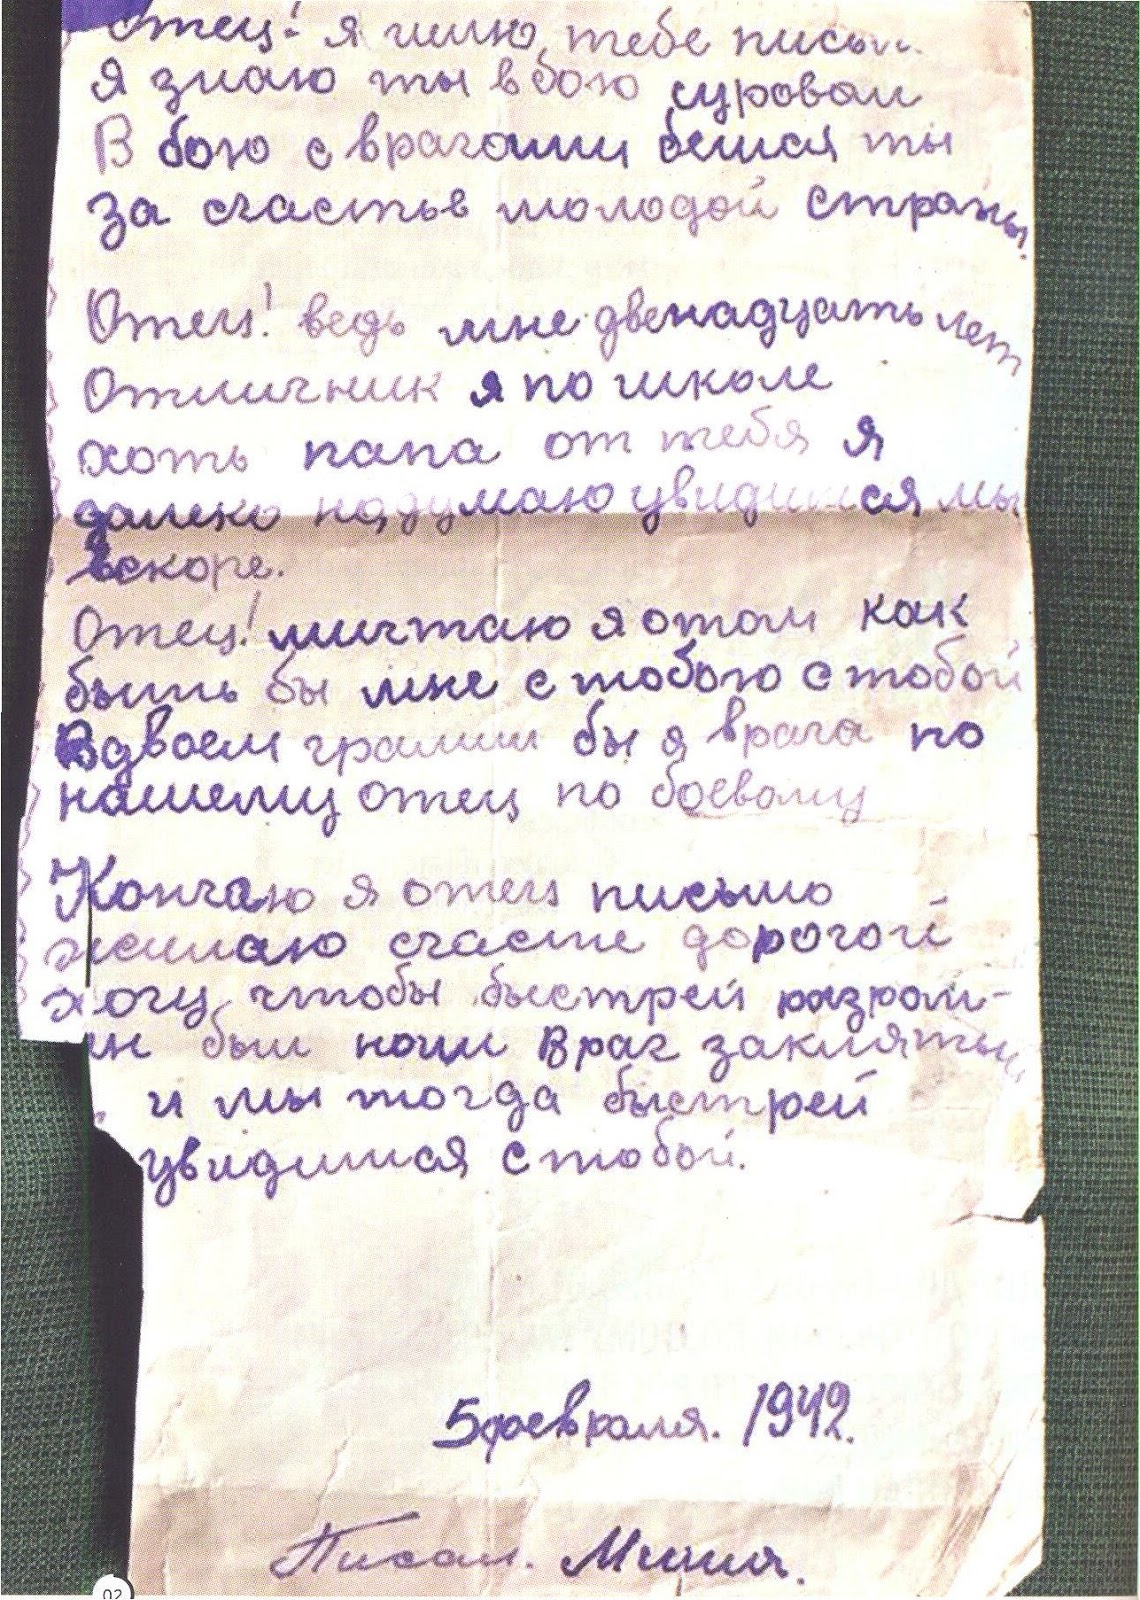 Отец! я шлю тебе
Я знаю ты в бою суровом
В бою с врагами бешся ты
за счастьв молодой страны.
Отец! ведь мне двенадцать лет
Отличник я по школе
хоть папа от тебя я
далеко но думаю увидимся мы
вскоре.
Отец! мичтаю я о том как
быть бы мне с тобою с тобой
Вдвоем грамили бы я врага по
нашему отец по боевому
Кончаю я отец письмо
жилаю счасте дорогой
хочу чтобы быстрей разром-
ин был наш враг заклятый
и мы тогда быстрей
увидимся с тобой.
5 февраля. 1942.
Писал. Миша.
02